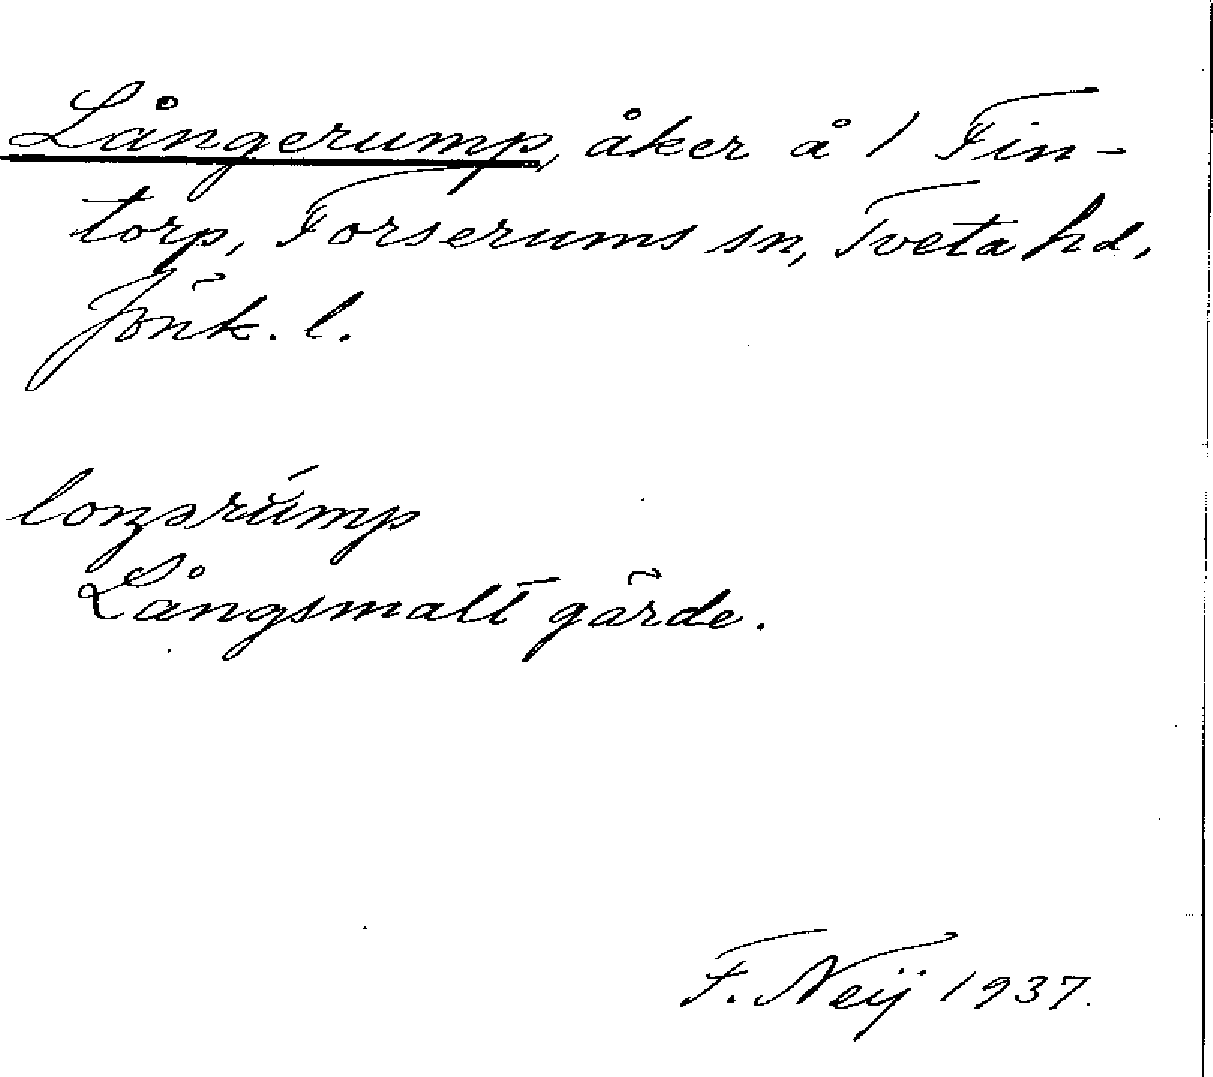 Långerump, åker å 1 Fin-
torp, Forserums sn, Tveta hd,
Jönk. l.
loŋərúmp
Långsmalt gärde.
F. Neij 1937.